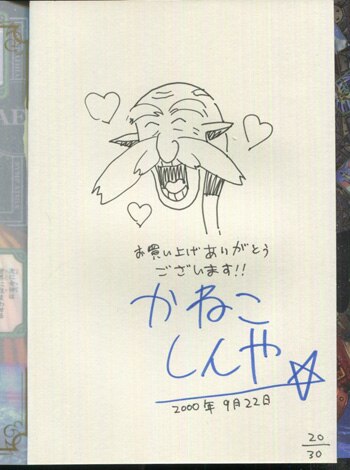 お買い上げありがとう
ございます!!
かねこ
しんや
2000年 9月22日
20
30